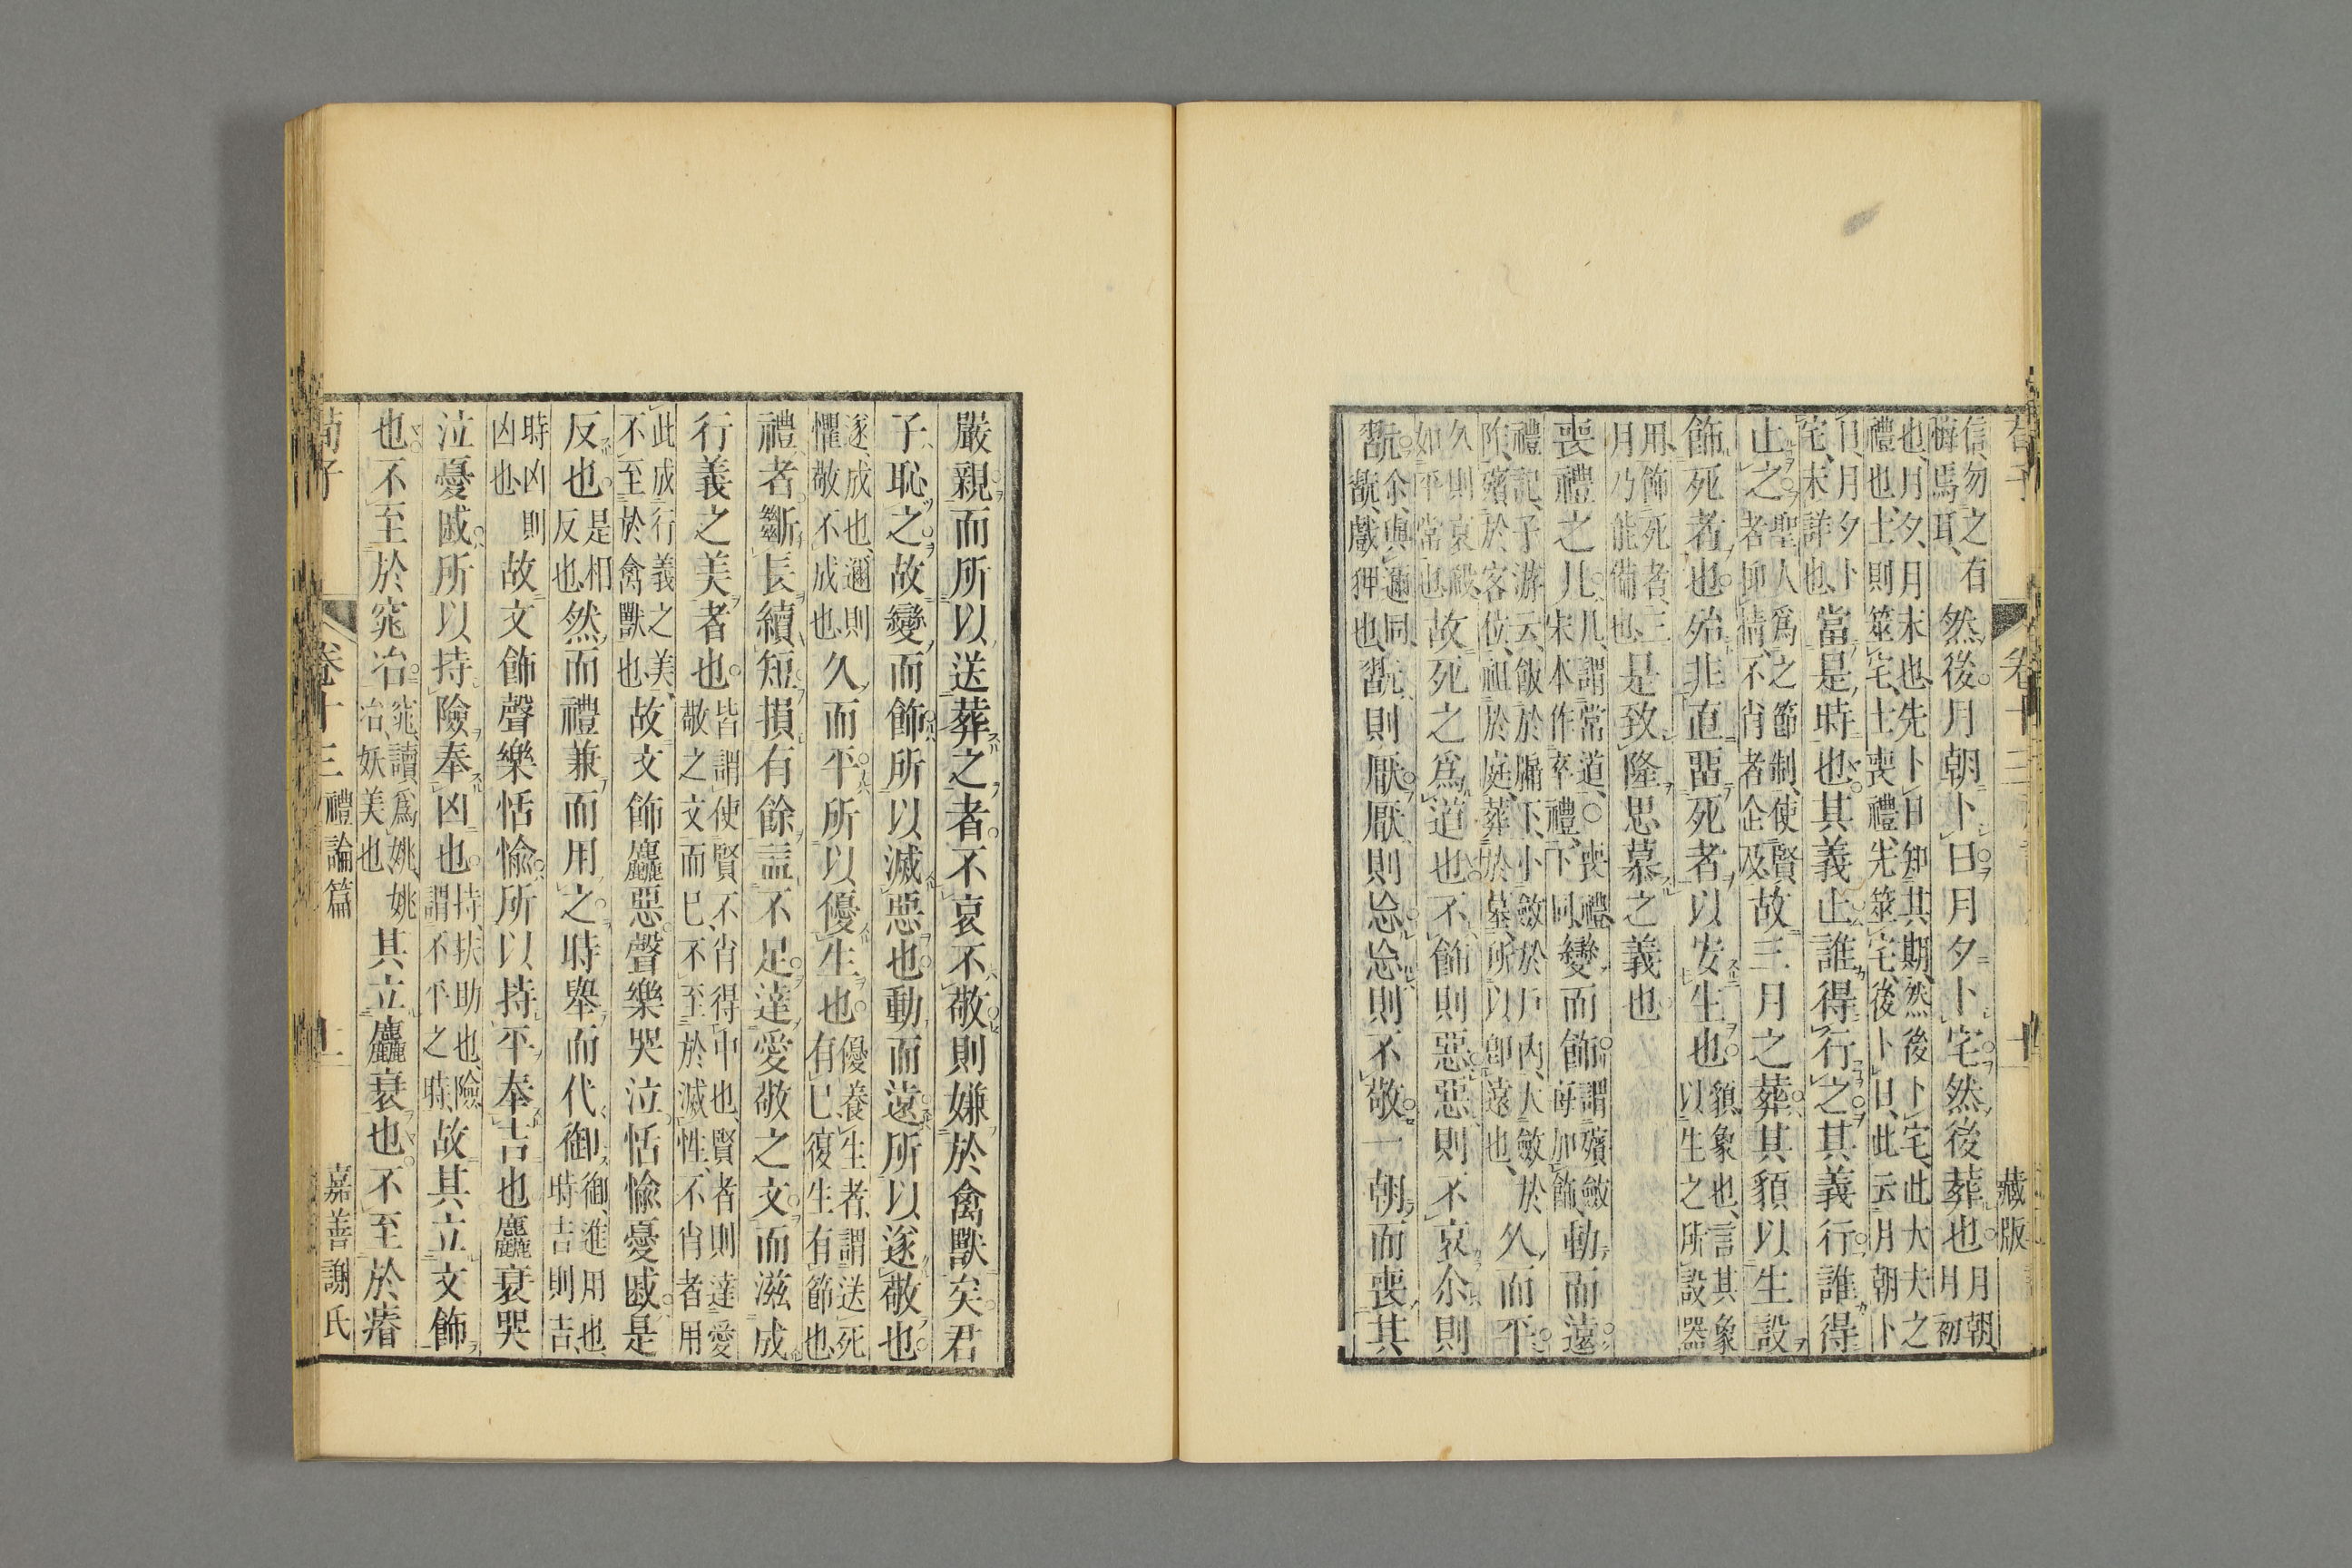 荀子 卷十三 十 藏版
信勿之有悔焉耳然後月朝卜日月夕卜宅然後葬也月朝月初
也月夕月末也先卜日知其期然後卜宅此大夫之禮也士則筮宅士喪禮先筮宅後卜日此云月朝卜
日月夕卜宅未詳也當是時也其義止誰得行之其義行誰得
止之聖人爲之節制使賢者抑情不肖者企及故三月之葬其䫉以生設
飾死者也殆非直畱死者以安生也䫉象也言其象以生之所設器
用飾死者三月乃能備也是致隆思慕之義也
喪禮之凡凡謂常道○喪禮宋本作卒禮下同變而飾謂殯斂每加飾動而遠
禮記子游云飯於牖下小斂於戶內大斂於阼殯於客位祖於庭葬於墓所以卽遠也久而平
久則哀殺如平常也故死之爲道也不飾則惡惡則不哀尒則
翫尒與邇同翫戲狎也翫則厭厭則忘忘則不敬一朝而喪其
嚴親而所以送葬之者不哀不敬則嫌於禽獸矣君
子恥之故變而飾所以滅惡也動而遠所以遂敬也
遂成也邇則懼敬不成也久而平所以優生也優養生者謂送死有已復生有節也
禮者斷長續短損有餘益不足達愛敬之文而滋成
行義之美者也皆謂使賢不肖得中也賢者則達愛敬之文而已不至於滅性不肖者用
此成行義之美不至於禽獸也故文飾麤惡聲樂哭泣恬愉憂戚是
反也是相反也然而禮兼而用之時舉而代御御進用也時吉則吉
時凶則凶也故文飾聲樂恬愉所以持平奉吉也麤衰哭
泣憂戚所以持險奉凶也持扶助也險謂不平之時故其立文飾
也不至於窕冶窕讀爲姚姚冶妖美也其立麤衰也不至於瘠
荀子 卷十三 禮論篇 十一 嘉善謝氏